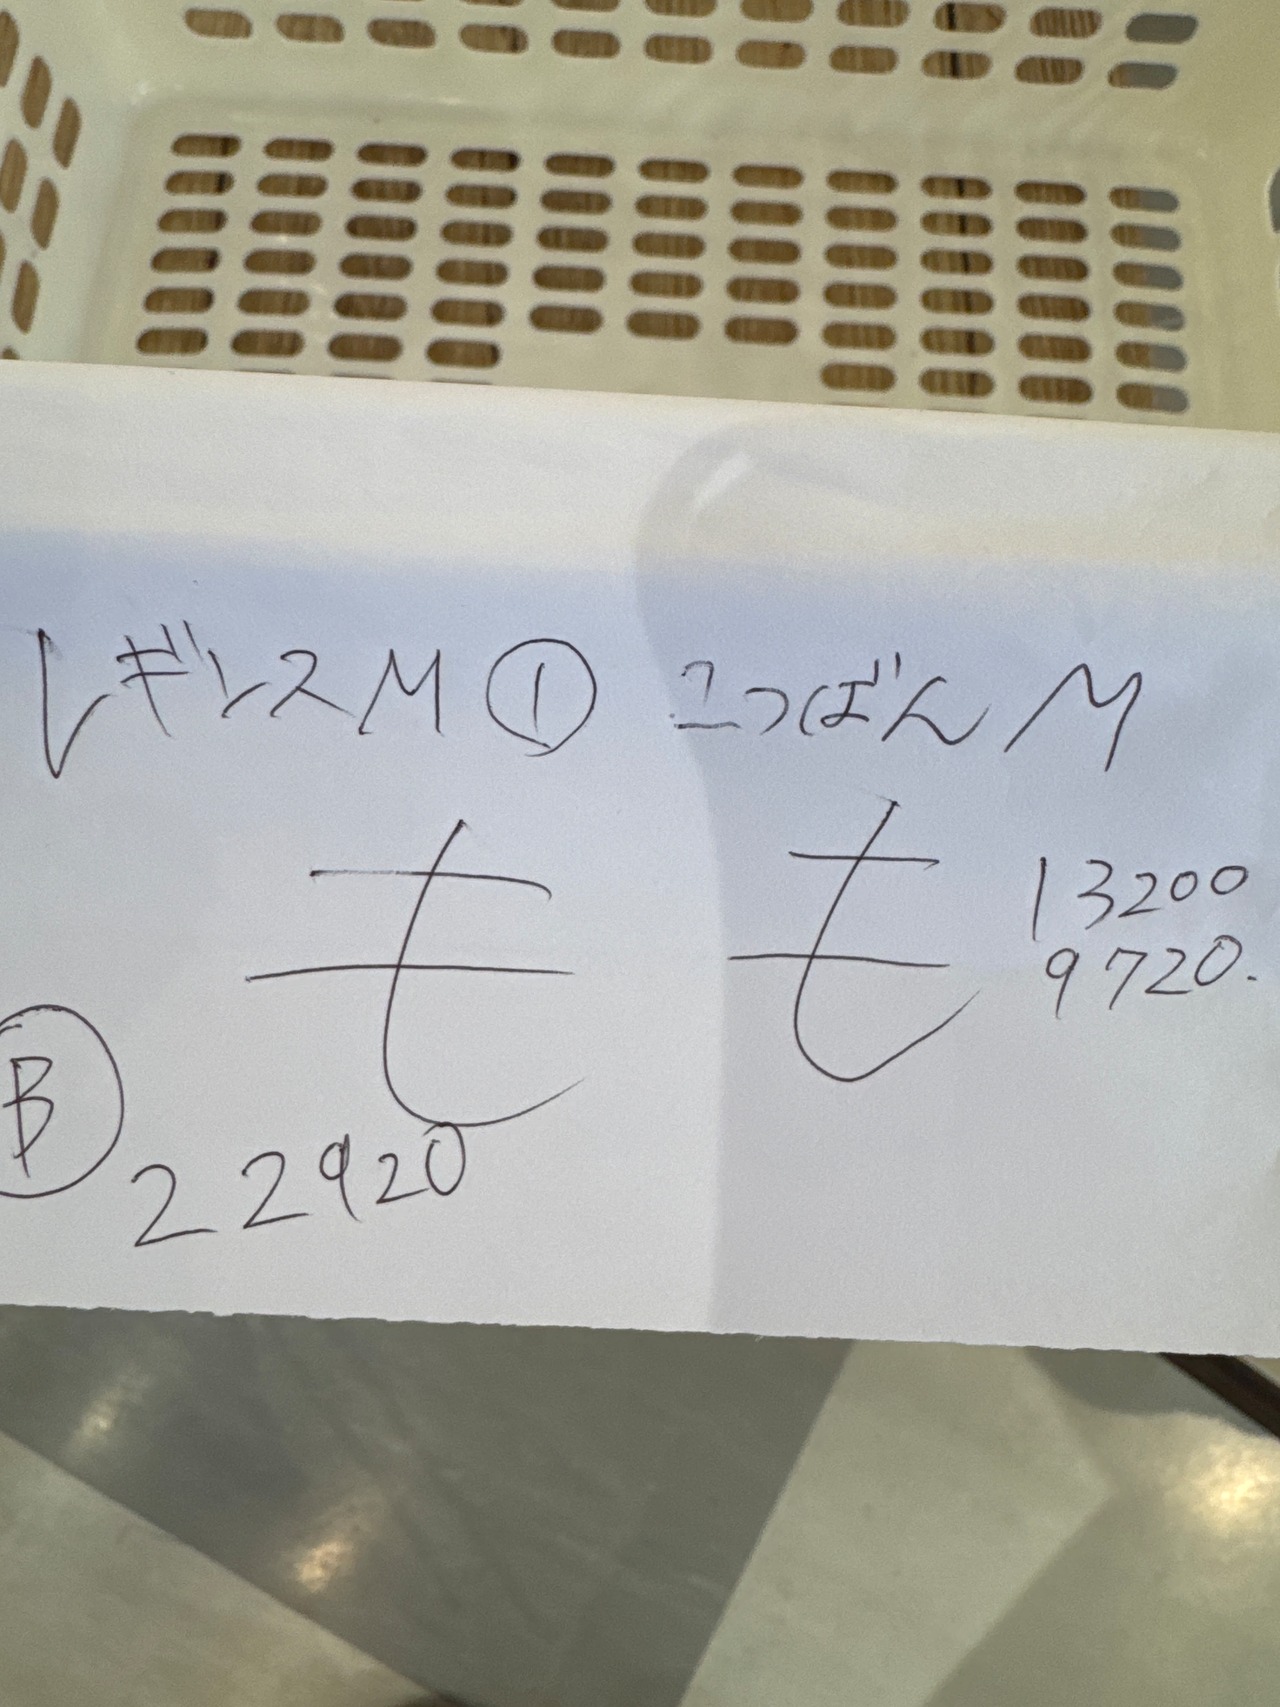 レギンスM① こつばんM
も も
13200
9720.
Ⓑ
22920